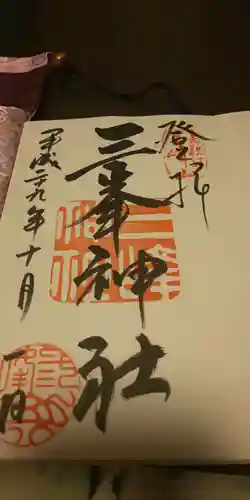 登拝
三峯神社
平成二十九年十月一日